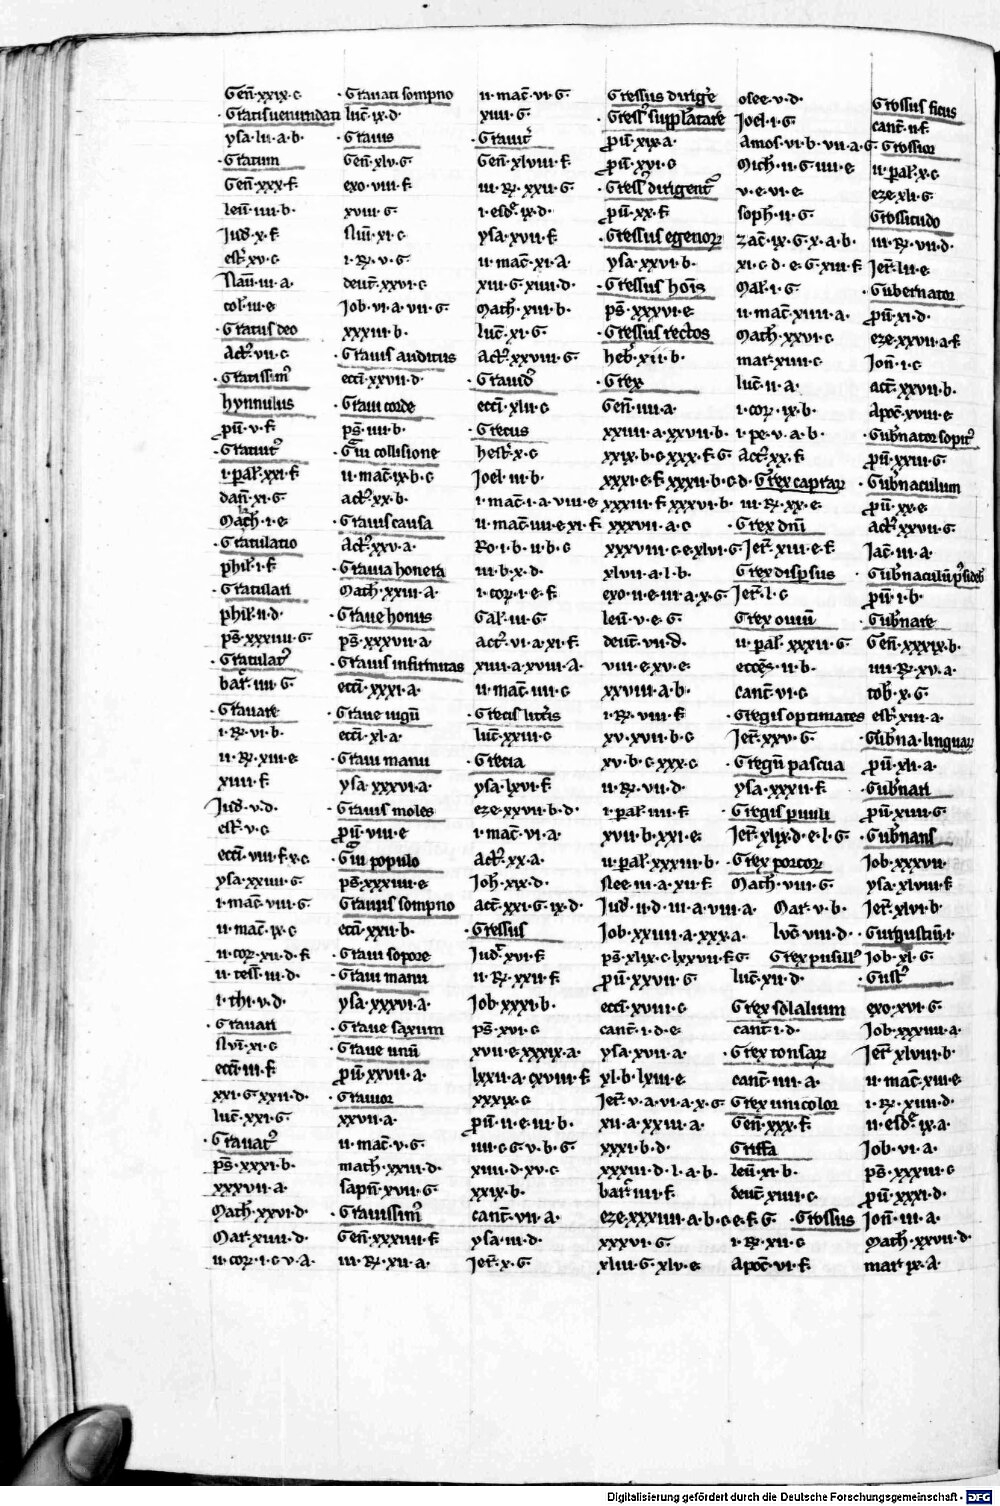 Gen̄·xxix·c
·Gratis uenundati
ysa·lii·a·b·
·Gratum
Gen̄·xxx·f·
leuī·iiii·b·
Jud̄·x·f·
est̄·xv·c
Naū·iii·a·
col·iii·e
·Gratus deo
Act·vii·c
·Gratissim̄
hynnulus
pū·v·f·
·Grauit᷑
i·pal·xxi·f·
dan̄·xi·G·
Math·i·e
·Gratulatio
phil·i·f·
·Gratulari
phil·ii·d·
ps̄·xxxiiii·G·
·Gratulat᷑
bar̄·iiii·G·
·Grauare
i·R·vi·b·
ii·R·xiii·e
xiiii·f·
Jud̄·v·d·
est̄·v·c
ecc̄i·viii·f·x·c
ysa·xxiiii·G·
i·mac̄·viii·G·
ii·mac̄·ix·c
ii·cor·xii·d·f·
ii·tess·iii·d·
i·thi·v·d·
·Grauari
Nūi·xi·c
ecc̄i·iii·f·
xxi·G·xxii·d·
luc̄·xxi·G·
·Grauat᷑
ps̄·xxxi·b·
xxxvii·a·
Math·xxvi·d·
Mar·xiiii·d·
ii·cor·i·c·v·a·
·Grauati sompno
luc̄·ix·d·
·Grauis
Gen̄·xlv·G·
exo·viii·f·
xviii·G·
Nūi·xi·c
i·R·v·G·
deut̄·xxvi·c
Job·vi·a·vii·G·
xxxiii·b·
·Grauis auditus
ecc̄i·xxvii·d·
·Graui corde
ps̄·iiii·b·
·Gui collisione
ii·mac̄·ix·b·c
act·xx·b·
·Grauis causa
Act·xxv·a·
·Grauia honera
Math·xxiii·a·
·Graue honus
ps̄·xxxvii·a·
·Grauis infirmitas
ecc̄i·xxxi·a·
·Graue iugū
ecc̄i·xl·a·
·Graui manu
ysa·xxxvi·a·
·Grauis moles
pū·viii·e
·Gui populo
ps̄·xxxiiii·e
Grauis sompno
ecc̄i·xxii·b·
·Graui sopore
·Graui manu
ysa·xxxvi·a·
·Graue saxum
·Graue unū
pū·xxvii·a·
·Grauior
xxvii·a·
ii·mac̄·v·G·
math·xxiii·d·
sapn̄·xvii·G·
·Grauissim̄
Gen̄·xxxiiii·f·
iii·R·xii·a·
ii·mac̄·vi·G·
xiiii·G·
·Grauit᷑
Gen̄·xlviii·f·
iii·R·xxii·G·
i·esd·ix·d·
ysa·xvii·f·
ii·mac̄·xi·a·
xiii·G·xiiii·d·
Math·xiii·b·
luc̄·xi·G·
Act·xxviii·G·
·Grauid᷑
ecc̄i·xlii·c
·Grecus
hest·x·c
Joel·iii·b·
i·mac̄·i·a·viii·e
ii·mac̄·iiii·e·xi·f·
Ro·i·b·ii·b·c
iii·b·x·d·
i·cor·i·e·f·
Gal·iii·G·
act·vi·a·xi·f·
xiiii·a·xviii·a·
ii·mac̄·iiii·c
·Grecis litt̄is
luc̄·xxiii·c
·Grecia
ysa·lxvi·f·
eze·xxvii·b·d·
i·mac̄·vi·a·
Act·xx·a·
Joh·xix·d·
act·xxi·G·ix·d·
·Gressus
Jud·xvi·f·
ii·R·xxii·f·
Job·xxxi·b·
ps̄·xvi·c
xvii·e·xxxix·a·
lxxii·a·cxviii·f·
xxxix·c
pū·ii·e·iii·b·
iiii·c·G·v·b·G·
xiiii·d·xv·c
xxix·b·
cant̄·vii·a·
ysa·iii·d·
Jer·x·G·
Gressus dirige
·Gress᷑ supplātare
pū·xix·a·
pū·xvi·c
·Gress᷑ dirigent᷑
pū·xx·f·
·Gressus egenoꝝ
ysa·xxvi·b·
·Gressus hoīs
ps̄·xxxvi·e
·Gressus rectos
heb·xii·b·
·Grex
Gen̄·iiii·a·
xxiiii·a·xxvii·b·
xxix·b·c·xxx·f·G·
xxxi·e·f·xxxii·b·c·d·
xxxiii·f·xxxvi·b·
xxxvii·a·c
xxxviii·c·e·xlvi·G·
xlvii·a·l·b·
exo·ii·e·iii·a·x·G·
leuī·v·e·G·
deut̄·vii·d·
viii·e·xv·e·
xxviii·a·b·
i·R·viii·f·
xv·xvii·b·c
xv·b·c·xxx·c
ii·R·vii·d·
i·pal·iiii·f·
xvii·b·xxi·e·
ii·pal·xxxiii·b·
Nee·iii·a·xii·f·
Jud·ii·d·iii·a·viii·a·
Job·xxiiii·a·xxx·a·
ps̄·xlix·c·lxxvii·f·G·
pū·xxvii·G·
ecc̄i·xviii·c
cant̄·i·d·e·
ysa·xvii·a·
xl·b·lxiii·e·
Jer·v·a·vi·a·x·G·
xii·a·xxiii·a·
xxxi·b·d·
xxxiii·d·l·a·b·
bar̄·iiii·f·
eze·xxxiiii·a·b·c·e·f·G·
xxxvi·G·
xliii·G·xlv·e·
osee·v·d·
Joel·i·G·
Amos·vi·b·vii·a·G·
Mich·ii·G·iiii·e
v·e·vi·e·
soph·ii·G·
zac̄·ix·G·x·a·b·
xi·c·d·e·G·xiii·f·
Mal·i·G·
ii·mac̄·xiiii·a·
Math·xxvi·c
mar·xiiii·c
luc̄·ii·a·
i·cor·ix·b·
i·pe·v·a·b·
Act·xx·f·
·Grex capraꝝ
iii·R·xx·e·
·Grex dnī
Jer·xiii·e·f·
Grex dispsus
Jer·l·c
Grex ouiū
ii·pal·xxxii·G·
ecces·ii·b·
cant̄·vi·c
·Gregis optimates
Jer·xxv·G·
·Gregū pascua
ysa·xxxii·f·
·Gregis pauli
Jer·xlix·d·e·l·G·
·Grex porcoꝝ
Math·viii·G·
Mar·v·b·
luc̄·viii·d·
Grex pusill᷑
luc̄·xii·d·
Grex solalium
cant̄·i·d·
·Grex tonsaꝝ
cant̄·iiii·a·
Grex unicolor
Gen̄·xxx·f·
Griffa
leuī·xi·b·
deut̄·xiiii·c·
·Grossus
i·R·xii·c
Apoc̄·vi·f·
Grossus ficus
cant̄·ii·f·
Grossior
ii·pal·x·c
eze·xli·G·
Grossitudo
iii·R·vii·d·
Jer·lii·e·
·Gubernator
pū·xi·d·
eze·xxvii·a·f·
Jon̄·i·c
act̄·xxvii·b·
Apoc̄·xviii·e
·Gub̄nator sopit᷑
pū·xxiii·G·
·Gub̄naculum
pū·xx·e·
act·xxvii·G·
Jac̄·iii·a·
·Gub̄naculū p̄sidēs
pū·i·b·
·Gub̄nare
Gen̄·xxxix·b·
iiii·R·xv·a·
tob·x·G·
est̄·xiii·a·
·Gub̄na·linguaꝝ
pū·xli·a·
·Gub̄nari
pū·xiiii·G·
·Gub̄nans
Job·xxxvii·
ysa·xlviii·f·
Jer·xlvi·b·
·Gurgustiū·i·
Job·xl·G·
·Gust᷑
exo·xvi·G·
Job·xxxiiii·a·
Jer·xlviii·b·
ii·mac̄·xiii·e
i·R·xiiii·d·
ii·esd·ix·a·
Job·vi·a·
ps̄·xxxiii·c
pū·xxxi·d·
Jon̄·iii·a·
Math·xxvii·d·
mar·ix·a·
Digitalisierung gefördert durch die Deutsche Forschungsgemeinschaft - DFG